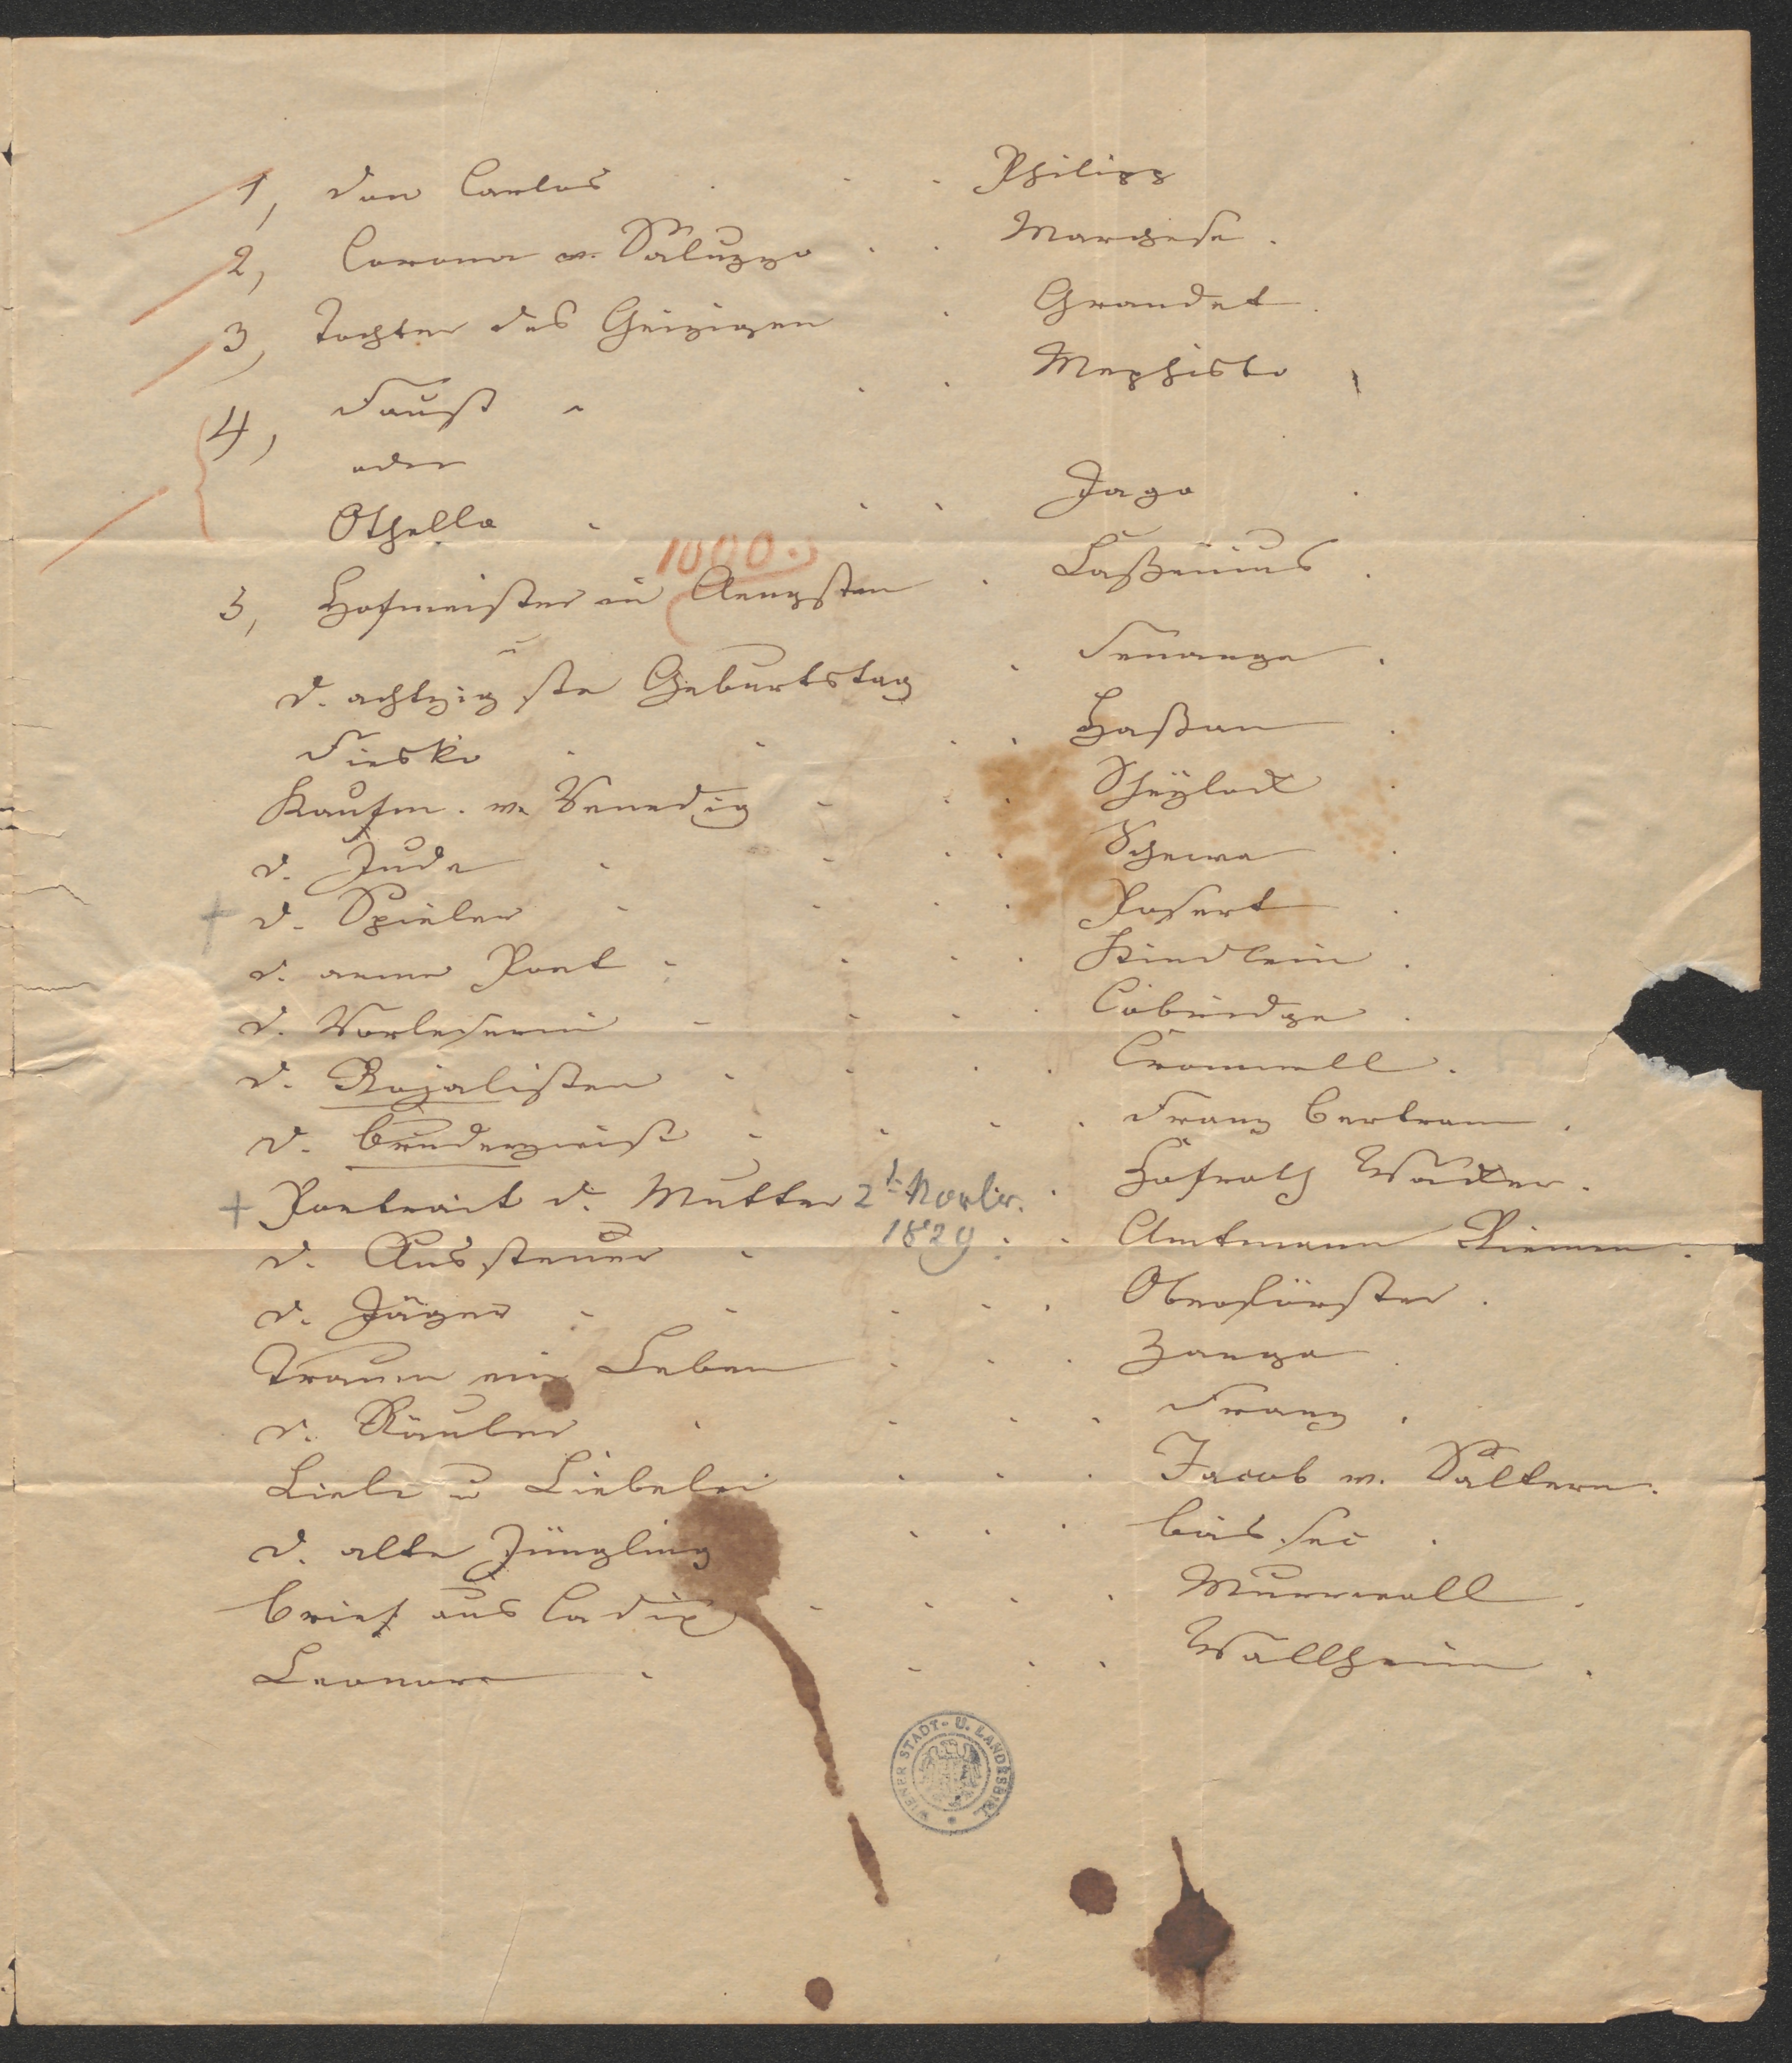 1, Don Carlos . . . Philipp
2, Corona v. Saluzzo . . Marchese .
3, Tochter des Geizigen . Grandet .
4, Faust . . . Mephisto
oder
Othello . . . Jago .
1000.
5, Hofmeister in Aengsten . Laßenius .
u
d. achtzigste Geburtstag . Senange .
Fiesko . . . . Haßan .
Kaufm. v. Venedig . . . Scheylock .
d. Jude . . . . Schewa .
+ d. Spieler . . . . Posert .
d. arme Poet . . . . Kindlein .
d. Vorleserin . . . . Cobridge .
d. Rojalisten . . . . Cromwell .
d. Bruderzwist . . . . Franz Bertram .
+ Portrait d. Mutter 2t. Novbr. . Hofrath Wacker .
1829.
d. Aussteuer . . . Amtmann Riemen .
d. Jäger . . . . . Oberförster .
Traum ein Leben . . . Zanga .
d. Räuber . . . . Franz .
Liebe u Liebelei . . . Jacob v. Saltern .
d. alte Jüngling . . .
Brief aus Cadix . . . . Murrwall .
Leonore . . . . Wallheim .
WIENER STADT- U. LANDESBIBL.